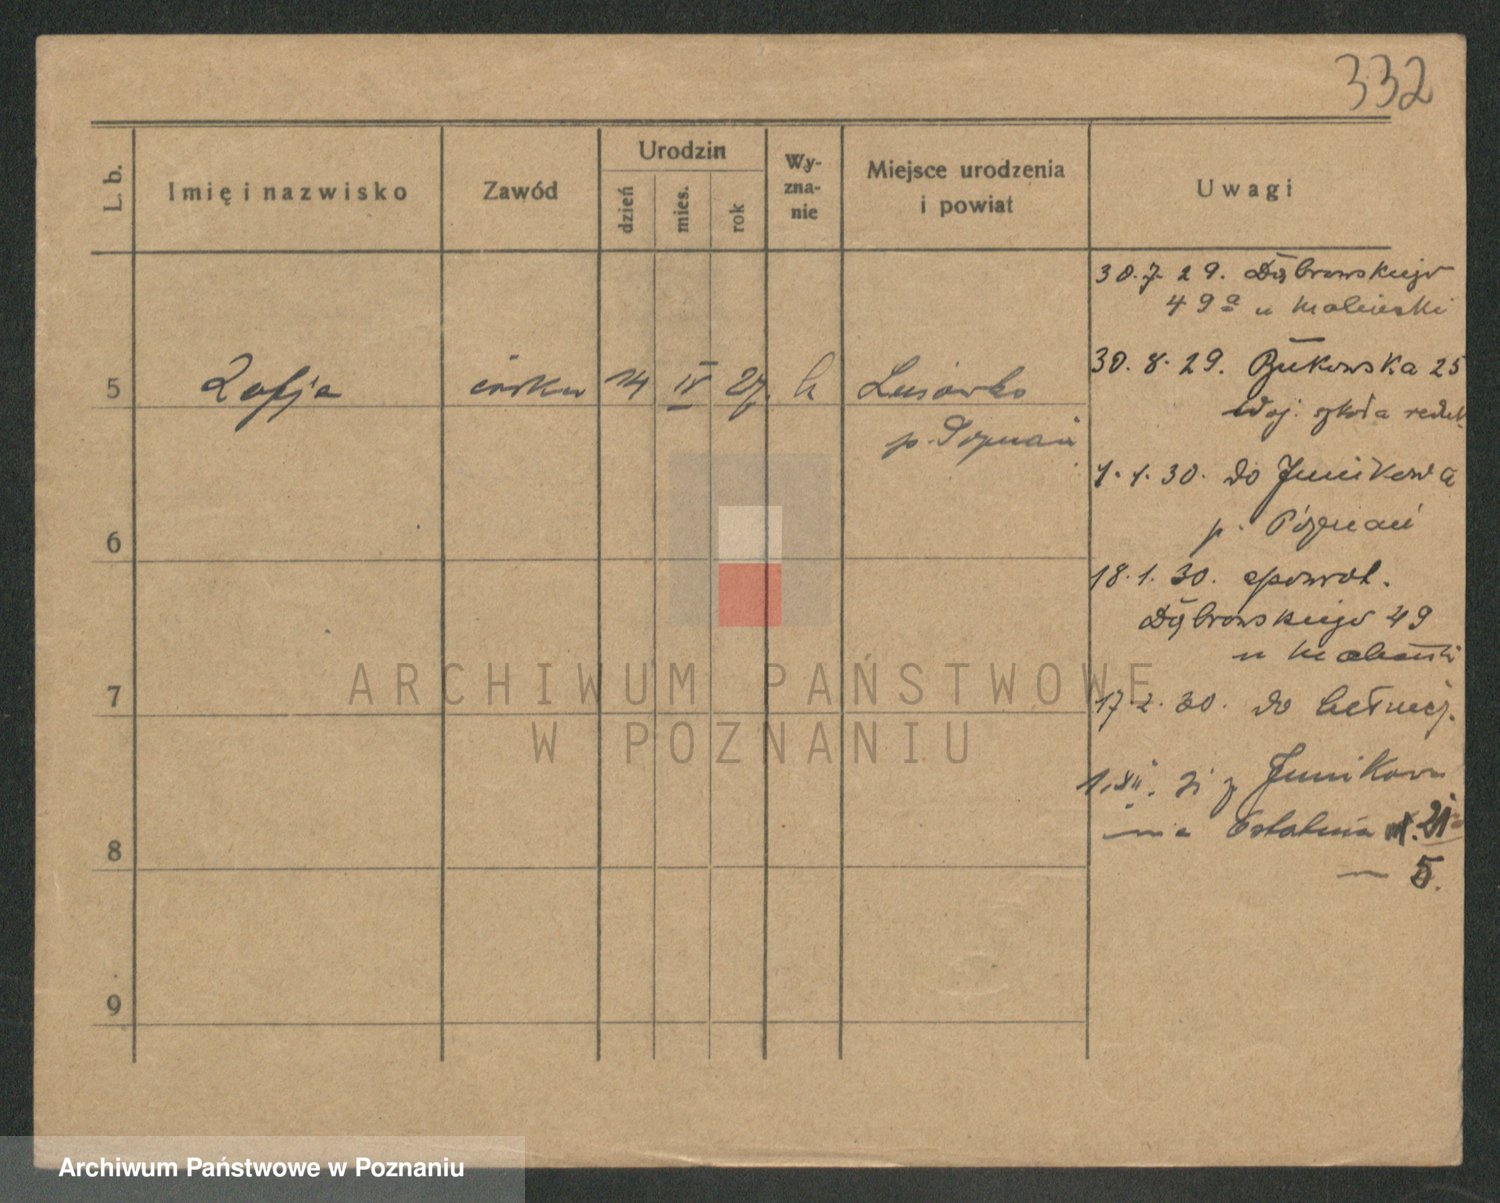 332
L. b.
Imię i nazwisko
Zawód
Urodzin
dzień
mies.
rok
Wy-
zna-
nie
Miejsce urodzenia
i powiat
Uwagi
5
Zofja
córka
14
IV
27.
k
Lusówko
p. Poznań
6
7
8
9
30.7.29. Dąbrowskiego
49a u
30.8.29. Bukowska 25
Woj. szkoła
1.1.30. do Junikowa
p. Poznań
18.1.30. spowrot.
Dąbrowskiego 49
u
17.2.30. do
1.XII. 31 z Junikowa
na Ostatnia 21
5.
ARCHIWUM PAŃSTWOWE
W POZNANIU
Archiwum Państwowe w Poznaniu